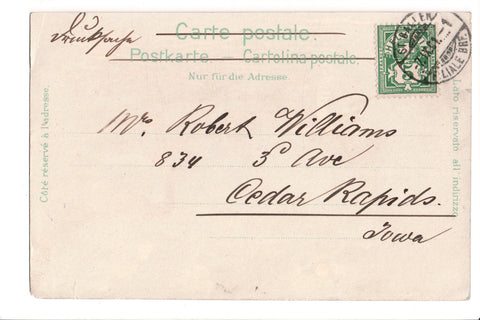 Drucksache
Carte postale.
Postkarte. — Cartolina postale.
Nur für die Adresse.
Côté réservé à l'adresse.
Lato riservato all indirizzo.
ST. GALLEN
5
Mr. Robert Williams
834 3 Ave
Cedar Rapids.
Iowa